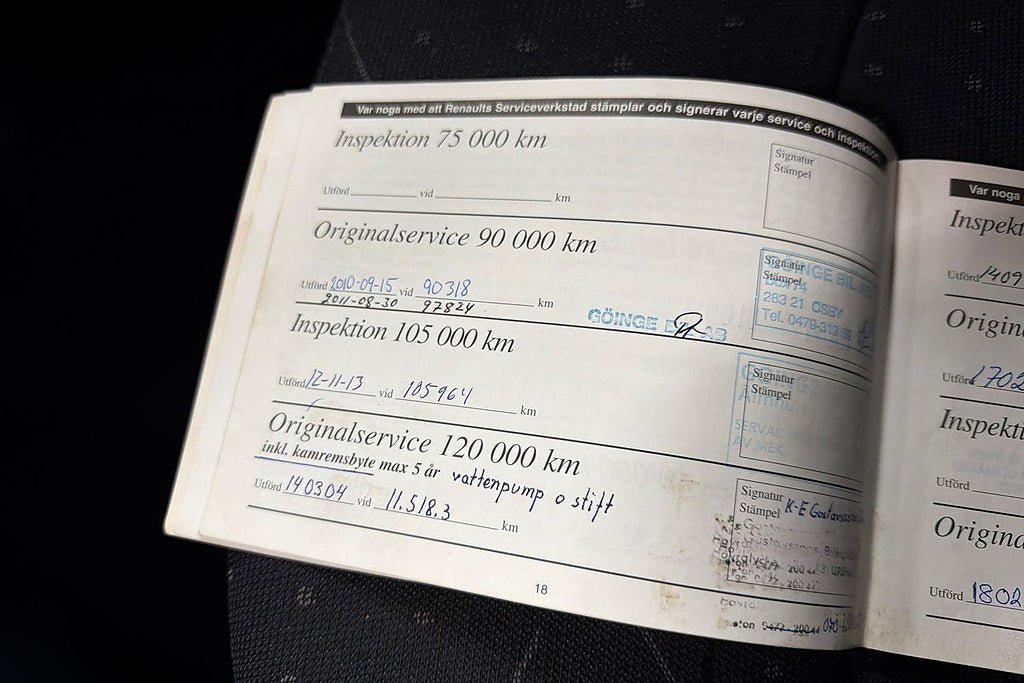 Var noga med att Renaults Serviceverkstad stämplar och signerar varje service och inspektion.
Inspektion 75 000 km
Signatur
Stämpel
Utförd vid km
Originalservice 90 000 km
Signatur
Stämpel
GÖINGE BIL AB
283 21 OSBY
Utförd 2010-09-15 vid 90318 km
2011-08-30 97824
GÖINGE BIL AB
Inspektion 105 000 km
Signatur
Stämpel
Utförd 12-11-13 vid 105964 km
Originalservice 120 000 km
inkl. kamremsbyte max 5 år vattenpump o stift
Signatur
Stämpel K-E
Utförd 140304 vid 11.518.3 km
18
Var noga
Inspekt
Utförd 1409
Origin
Utförd 1702
Inspekti
Utförd
Origina
Utförd 1802